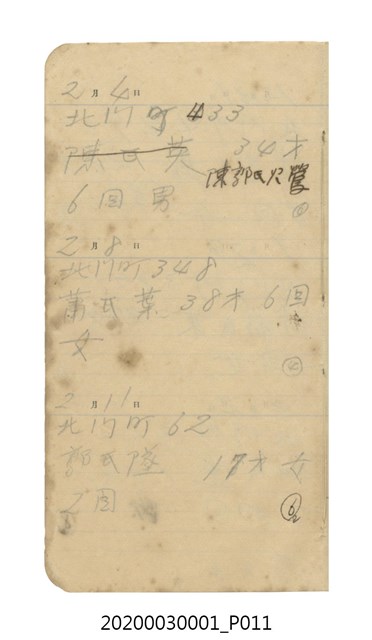 2月4日
北川町433
陳氏英 34才
陳郭氏 營
6回男
2月8日
北川町348
蕭氏葉 38才 6回
女
④
2月11日
北川町62
郭氏 17才女
2回
20200030001_P011